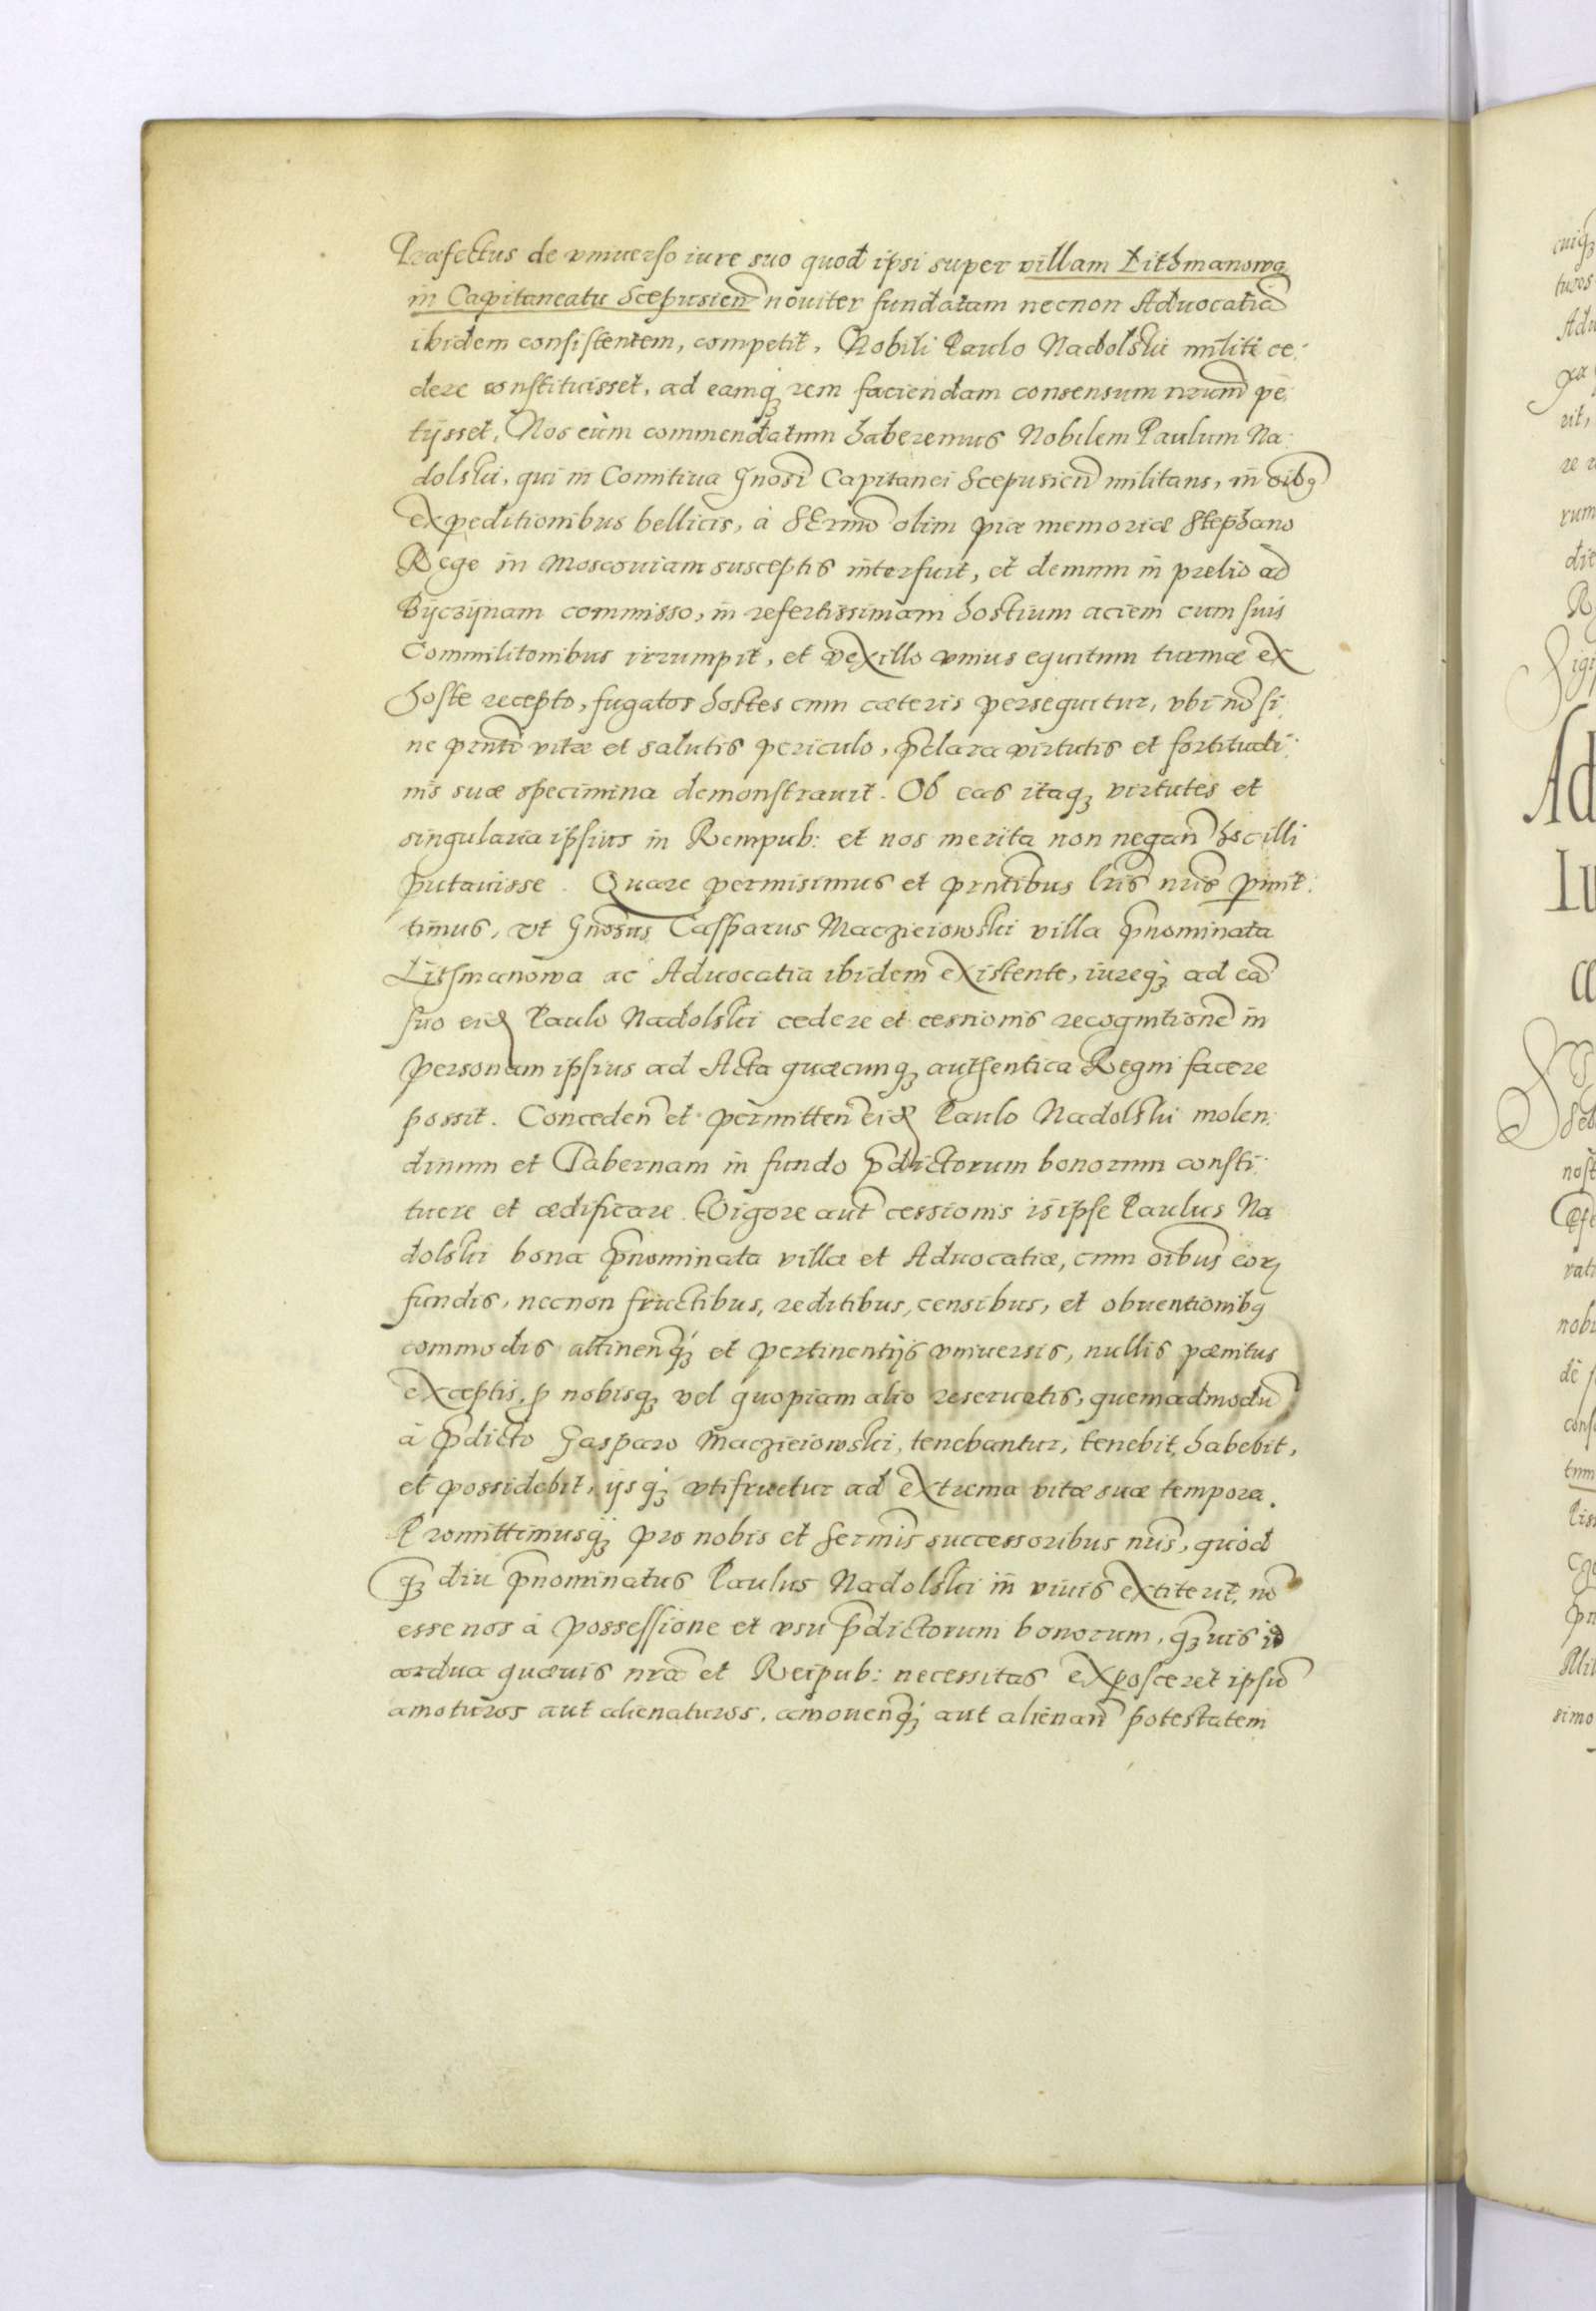 Præfectus de vniuerso iure suo quod ipsi super villam Lithmanowa
in Capitaneatu Scepusień nouiter fundatam necnon Aduocatiā
ibidem consistentem, competit, Nobili Paulo Nadolski militi ce:
dere constituisset, ad eamq₃ rem faciendam consensum nr̃um pe:
tijsset, Nos cùm commendatum haberemus Nobilem Paulum Na:
dolski, qui in Comitiua Gñosi Capitanei Scepusień militans, in oĩbꝰ
expeditionibus bellicis, à SErmõ olim piæ memoriæ Stephano
Rege in Moscouiam susceptis interfuit, et demum in prelio ad
Byczynam commisso, in refertissimam hostium aciem cum suis
Commilitonibus irrumpit, et vexillo vnius equitum turmæ ex
hoste recepto, fugatos hostes cum cæteris persequitur, vbi nõ si:
ne prñti vitæ et salutis periculo, p̃clara virtutis et fortitudi:
nis suæ specimina demonstrauit. Ob eas itaq₃ virtutes et
singularia ipsius in Rempub: et nos merita non negań hoc illi
putauisse. Quare permisimus et prñtibus lr̃is nr̃is ꝑmit:
timus, vt Gñosus Casparus Maczieiowski villa p̃nominata
Lithmanowa ac Aduocatia ibidem existente, iureq₃ ad eā
suo eid Paulo Nadolski cedere et cessionis recognitionē in
personam ipsius ad Acta quæcunq₃ authentica Regni facere
possit. Conceden̄ et permitten̄ eid Paulo Nadolski molen:
dinum et Tabernam in fundo p̃dictorum bonorum consti:
tuere et ædificare. Vigore aut̃ cessionis is ipse Paulus Na
dolski bona p̃nominata villæ et Aduocatiæ, cum oĩbus eorꝝ
fundis, necnon fructibus, reditibus, censibus, et obuentionibꝰ
commodis attinen̄q₃ et pertinentijs vniuersis, nullis pænitus
exceptis, ꝓ nobisq₃ vel quopiam alio reseruatis, quemadmodū
à p̃dicto Gasparo Maczieiowski, tenebantur, tenebit, habebit,
et possidebit, ijsq₃ vtifruetur ad extrema vitæ suæ tempora.
Promittimusq₃ pro nobis et Sermĩs successoribus nr̃is, quòd
q₃ diu p̃nominatus Paulus Nadolski in viuis extiterit, nõ
esse nos à possessione et vsu p̃dictorum bonorum, q₃uis id
ardua quæuis nr̃a et Reipub: necessitas exposceret ipsū
amoturos aut alienaturos, amouen̄q₃ aut alienan̄ potestatem